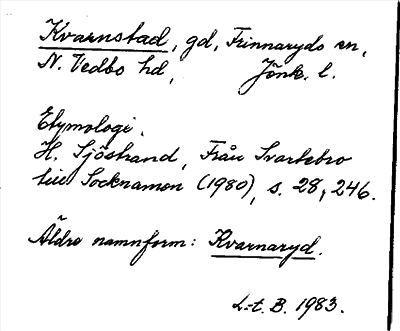 Kvarnstad, gd, Frinnaryds sn,
N. Vedbo hd, Jönk. l.
Etymologi.
H. Sjöstrand, Från Svartebro
till Socknamen (1980), s. 28, 246.
Äldre namnform: Kvarnaryd.
L-t. B. 1983.